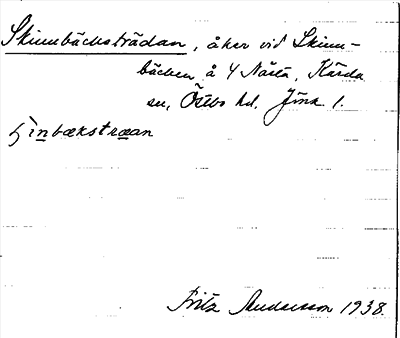 Skinnbäcksträdan, åker vid Skinn-
bäcken å 4 Nästa, Kärda
sn, Östbo hd. Jönk. l.
ɧinbækstræan
Fritz Andersson 1938.